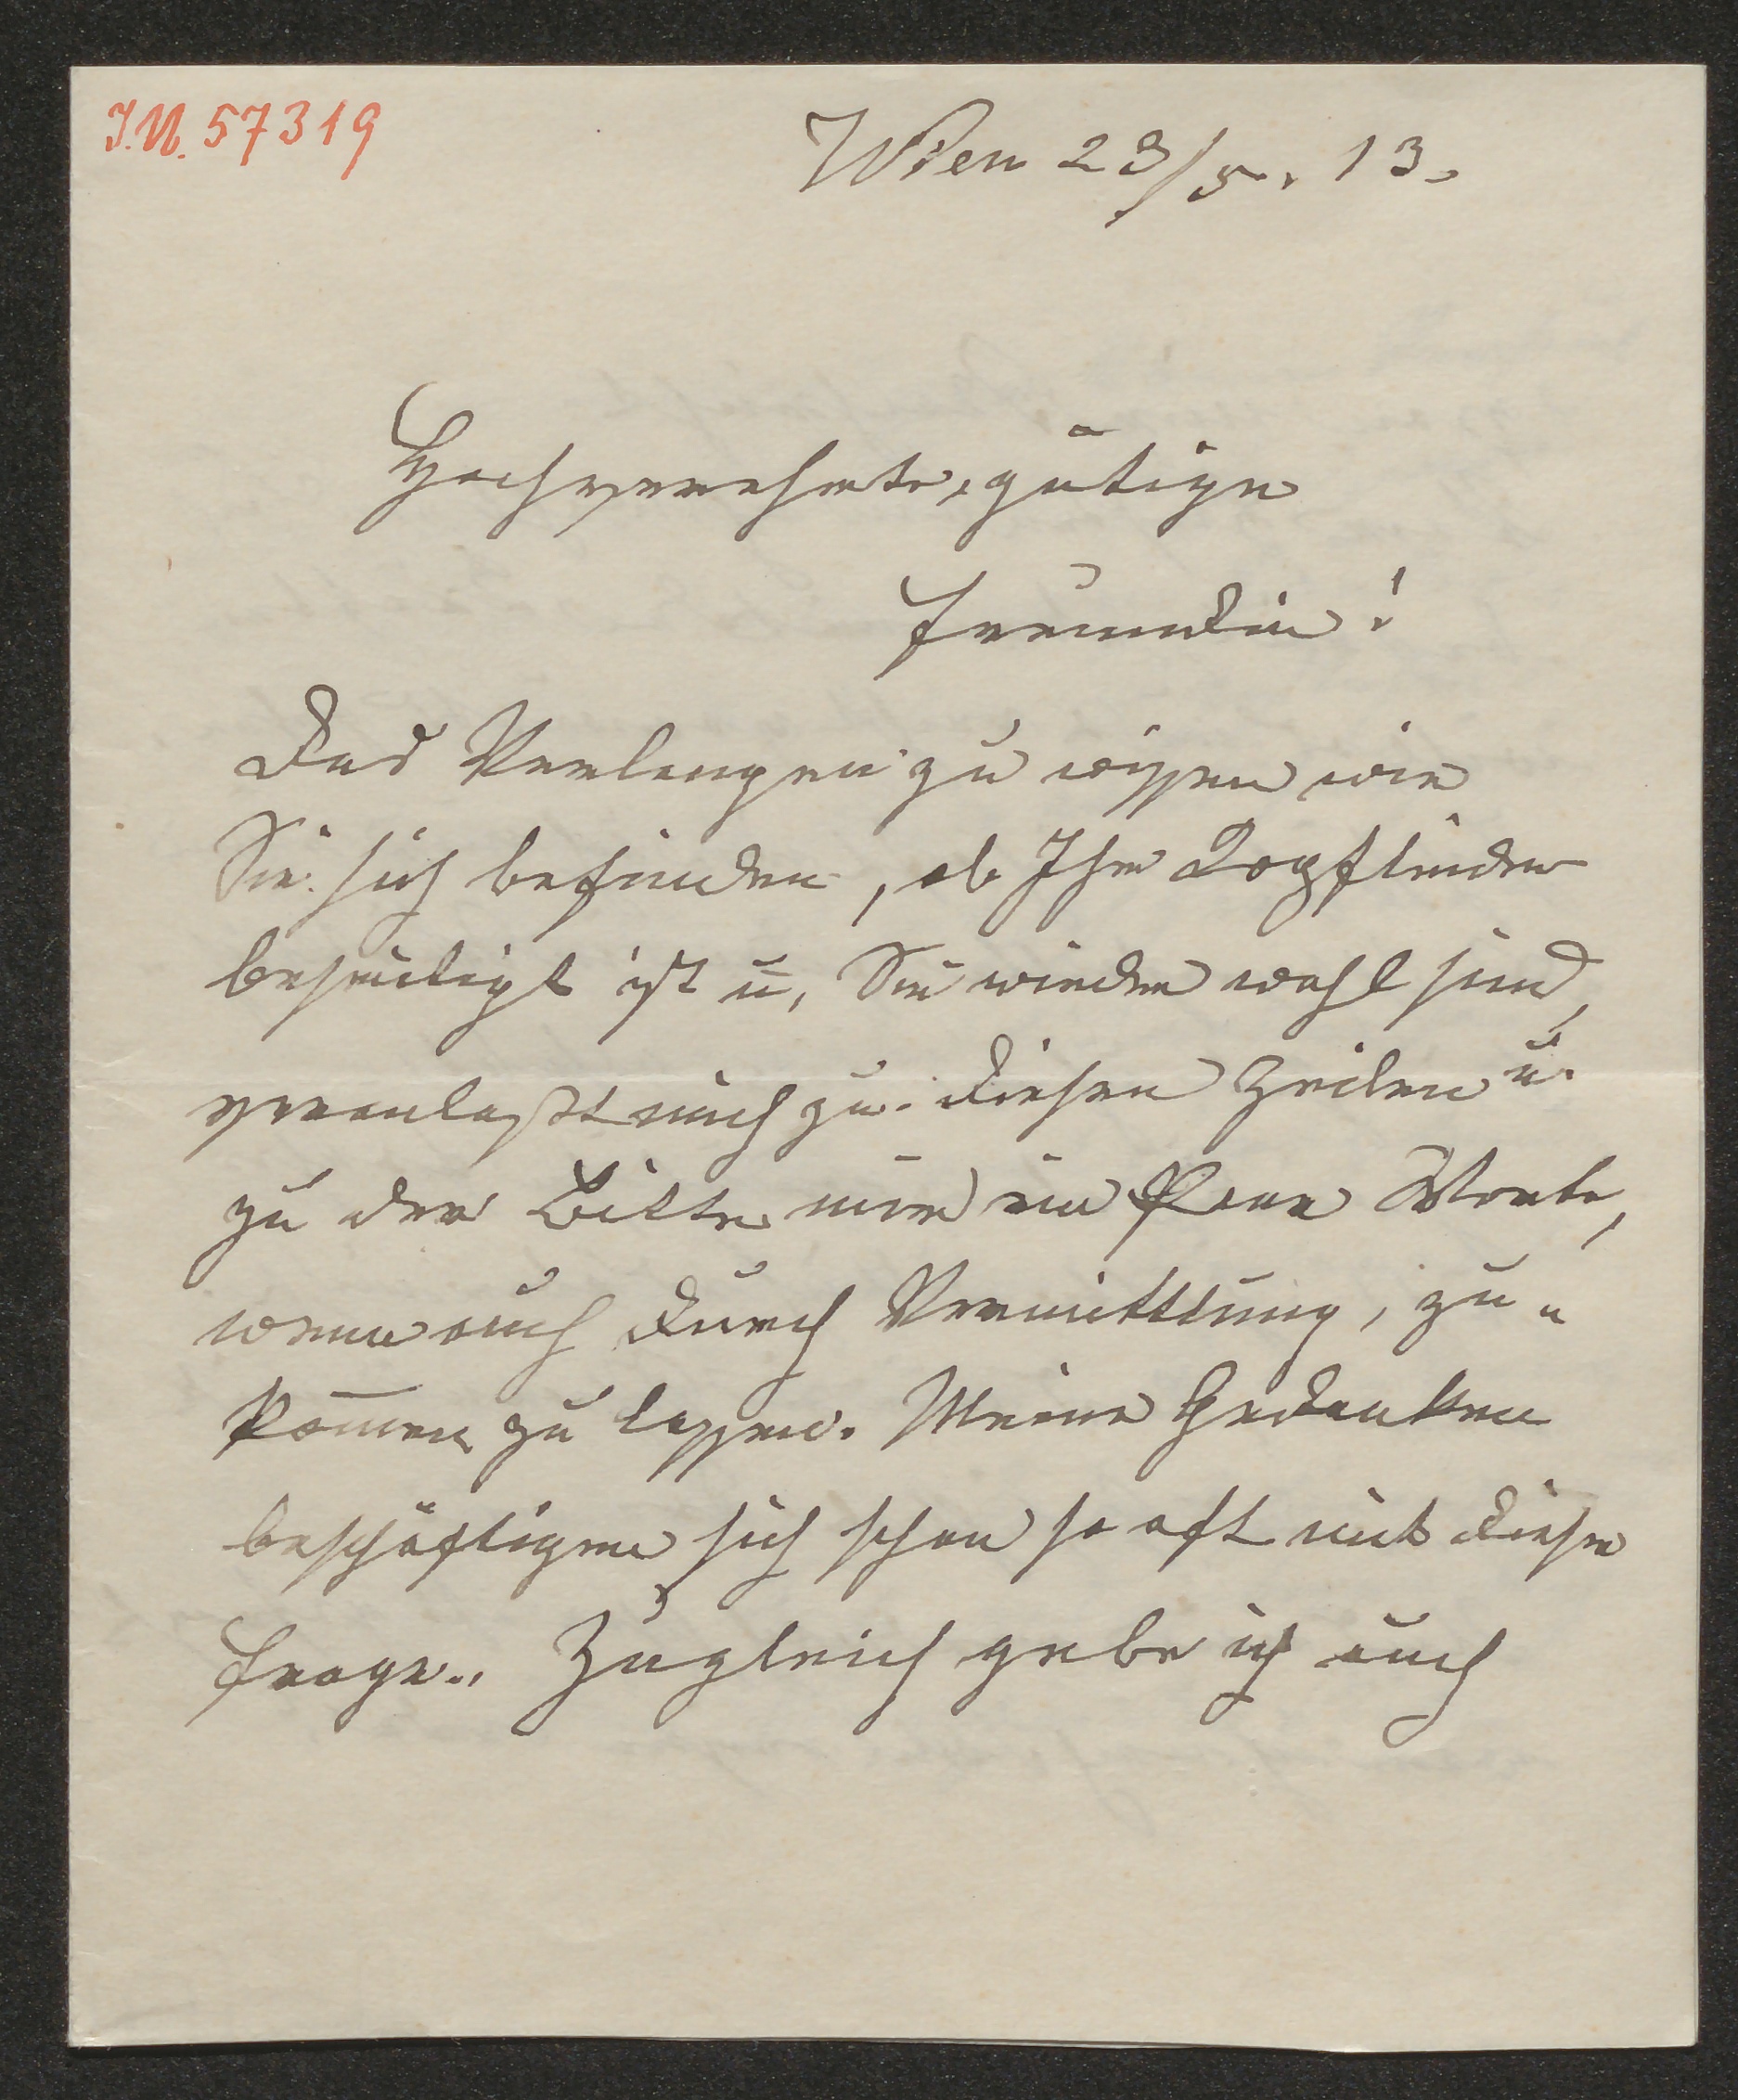 I.N. 57319
Wien 23/5. 13.
Hochverehrte, gütige
Freundin!
Das Verlangen zu wissen wie
Sie sich befinden, ob Ihr Kopfleiden
beseitigt ist u, Sie wieder wohl sind,
veranlaßt mich zu diesen Zeilen u.
zu der Bitte mir ein Paar Worte,
wenn auch durch Vermittlung, zu„
kom̅en zu lassen. Meine Gedanken
beschäftigen sich schon so oft mit dieser
Frage.. Zugleich gebe ich auch